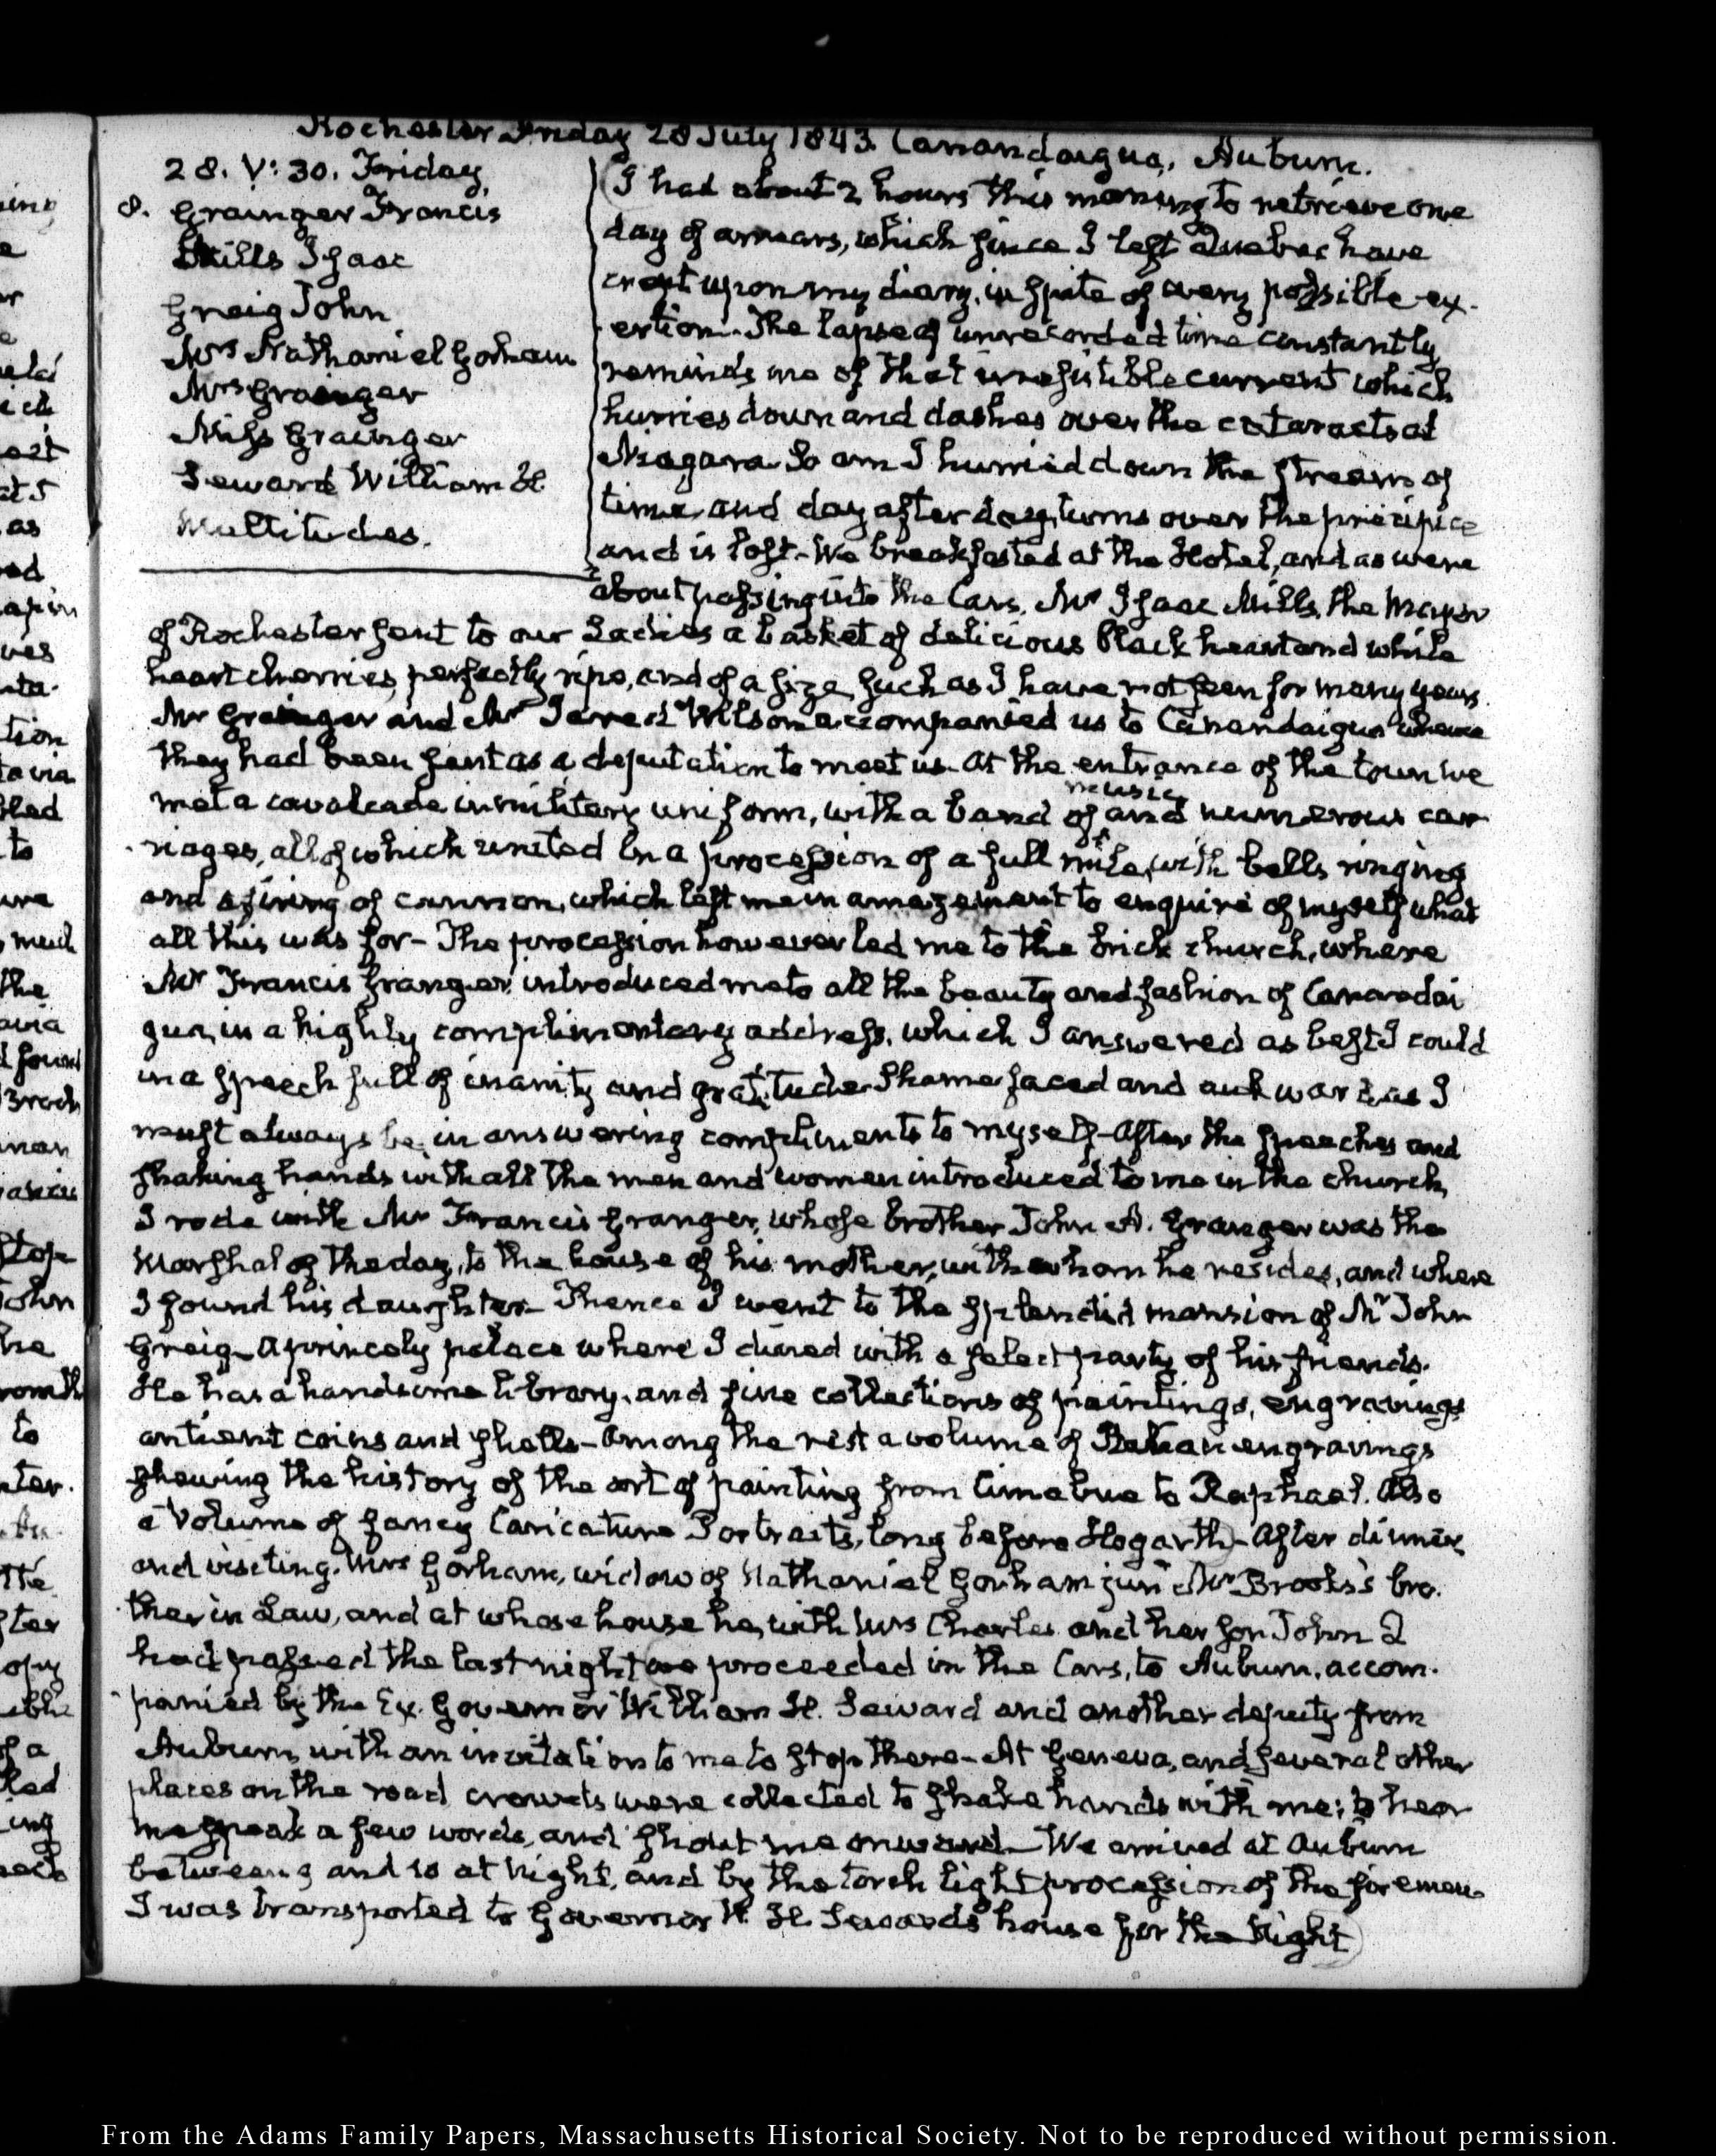 Rochester Friday 28 July 1843. Canandaigua, Auburn.
28. V: 30. Friday
8.
Grainger Francis
Mills Isaac
Greig John
Mrs Nathaniel Gorham
Mrs Grainger
Miss Grainger
Seward William H.
Multitudes.
I had about 2 hours this morning to retrieve one
day of arrears, which since I left Quebec have
crept upon my diary, in spite of every possible ex-
ertion. The lapse of unrecorded time constantly
reminds me of that irresistible current which
hurries down and dashes over the cataracts at
Niagara. So am I hurried down the stream of
time, and day after day, turns over the precipice
and is lost. We breakfasted at the Hotel, and as were
about passing into the Cars, Mr Isaac Mills, the Mayor
of Rochester sent to our Ladies a basket of delicious black heart and white
heart cherries, perfectly ripe, and of a size such as I have not seen for many years.
Mr Grainger and Mr Jared Wilson accompanied us to Canandaigua whence
they had been sent as a deputation to meet us. At the entrance of the town we
met a cavalcade in military uniform, with a band of and numerous car-
music
riages, all of which united in a procession of a full mile, with bells ringing
and a firing of cannon, which left me in amazement to enquire of myself what
all this was for– The procession however led me to the brick church, where
Mr Francis Granger introduced me to all the beauty and fashion of Canandai
gua, in a highly complimentary address, which I answered as best I could
in a speech full of inanity and gratitude. Shame faced and aukward, as I
must always be, in answering compliments to myself– After the speeches and
shaking hands with all the men and women introduced to me in the church,
I rode with Mr Francis Granger, whose brother John A. Granger was the
Marshal of the day, to the house of his mother, with whom he resides, and where
I found his daughter– Thence I went to the splendid mansion of Mr John
Greig– a princely palace where I dined with a select party of his friends.
He has a handsome library, and fine collections of paintings, engravings
antient coins and shells– Among the rest a volume of Italian engravings
shewing the history of the art of painting from Cimabue to Raphael. Also
a Volume of fancy Caricature Portraits, long before Hogarth– After dinner
and visiting Mrs Gorham, widow of Nathaniel Gorham junr Mr Brooks's bro-
ther in Law, and at whose house he, with Mrs Charles and her son John 2
had passed the last night we proceeded in the Cars, to Auburn, accom-
panied by the Ex. Governor William H. Seward and another deputy from
Auburn, with an invitation to me to stop there– At Geneva, and several other
places on the road crowds were collected to shake hands with me; to hear
me speak a few words, and shout me onward– We arrived at Auburn
between 9 and 10 at Night, and by the torch light procession of the firemen
I was transported to Governor W. H. Seward's house for the Night
From the Adams Family Papers, Massachusetts Historical Society. Not to be reproduced without permission.